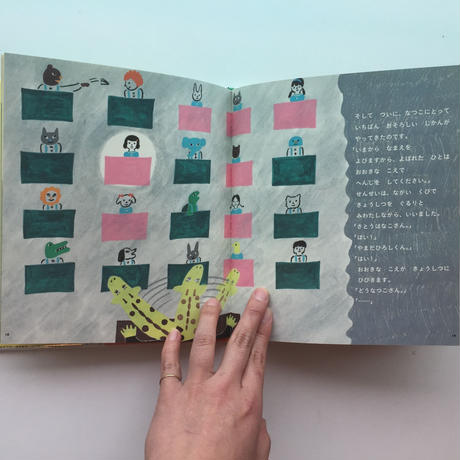 そして ついに、なつこにとって
いちばん おそろしい じかんが
やってきたのです。
「いまから なまえを
よびますから、よばれた ひとは
おおきな こえで
へんじを してください。」
せんせいは、ながい くびで
きょうしつを ぐるりと
みわたしながら、いいました。
「さとうはなこさん。」
「はい!」
「やまだひろしくん。」
「はい!」
おおきな こえが きょうしつに
ひびきます。
「どうなつこさん。」
「——。」
18